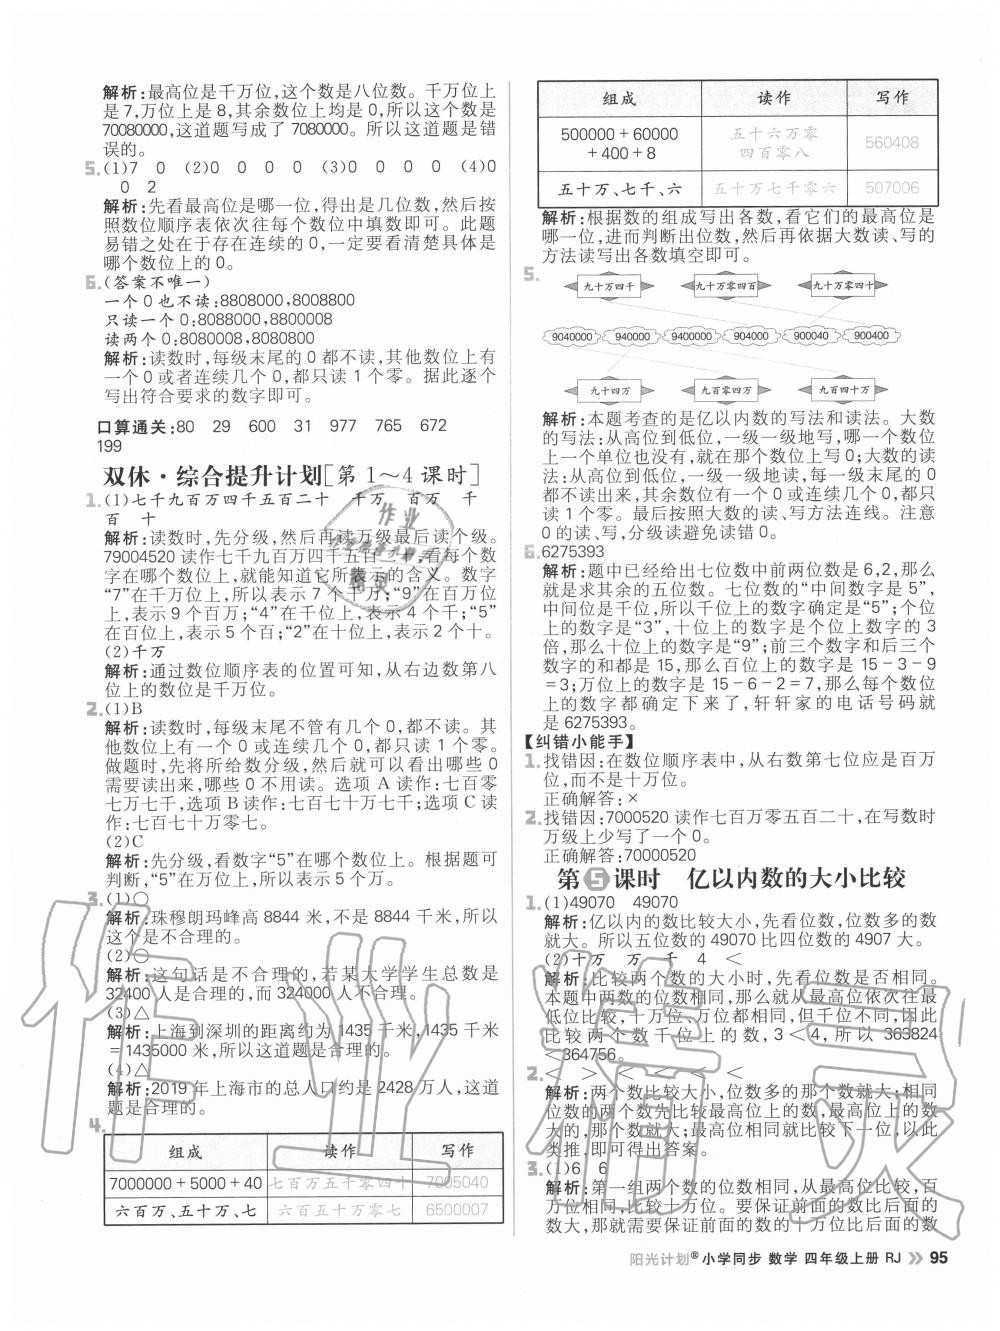 解析:最高位是千万位,这个数是八位数。千万位上
是7,万位上是8,其余数位上均是0,所以这个数是
70080000,这道题写成了7080000。所以这道题是错
误的。
5.(1)7 0 (2)0 0 0 0 (3)0 0 0 0 (4)0
0 2
解析:先看最高位是哪一位,得出是几位数,然后按
照数位顺序表依次往每个数位中填数即可。此题
易错之处在于存在连续的0,一定要看清楚具体是
哪个数位上的0。
6.(答案不唯一)
一个0也不读:8808000,8008800
只读一个0:8088000,8800008
读两个0:8080008,8080800
解析:读数时,每级末尾的0都不读,其他数位上有
一个0或者连续几个0,都只读1个零。据此逐个
写出符合要求的数字即可。
口算通关:80 29 600 31 977 765 672
199
双休·综合提升计划[第1～4课时]
1.(1)七千九百万四千五百二十 千万 百万 千
百 十
解析:读数时,先分级,然后再读万级最后读个级。
79004520读作七千九百万四千五百二十,看每个数
字在哪个数位上,就能知道它所表示的含义。数字
“7”在千万位上,所以表示7个千万;“9”在百万位
上,表示9个百万;“4”在千位上,表示4个千;“5”
在百位上,表示5个百;“2”在十位上,表示2个十。
(2)千万
解析:通过数位顺序表的位置可知,从右边数第八
位上的数位是千万位。
2.(1)B
解析:读数时,每级末尾不管有几个0,都不读。其
他数位上有一个0或连续几个0,都只读1个零。
做题时,先将所给数分级,然后就可以看出哪些0
需要读出来,哪些0不用读。选项A读作:七百零
七万七千,选项B读作:七百七十万七千;选项C读
作:七百七十万零七。
(2)C
解析:先分级,看数字“5”在哪个数位上。根据题可
判断,“5”在万位上,所以表示5个万。
3.(1)○
解析:珠穆朗玛峰高8844米,不是8844千米,所以
这个是不合理的。
(2)○
解析:这句话是不合理的,若某大学学生总数是
32400人是合理的,而324000人不合理。
(3)△
解析:上海到深圳的距离约为1435千米,1435千米
=1435000米,所以这道题是合理的。
(4)△
解析:2019年上海市的总人口约是2428万人,这道
题是合理的。
4.
组成 读作 写作
7000000+5000+40 七百万五千零四十 7005040
六百万、五十万、七 六百五十万零七 6500007
组成 读作 写作
500000+60000
+400+8
五十六万零
四百零八
560408
五十万、七千、六 五十万七千零六 507006
解析:根据数的组成写出各数,看它们的最高位是
哪一位,进而判断出位数,然后再依据大数读、写的
方法读写出各数填空即可。
5.
九十万四千 九十万零四百 九十万零四十
9040000 940000 9400000 904000 900040 900400
九十四万 九百零四万 九百四十万
解析:本题考查的是亿以内数的写法和读法。大数
的写法:从高位到低位,一级一级地写,哪一个数位
上一个单位也没有,就在那个数位上写0;大数的读
法:从高位到低位,一级一级地读,每一级末尾的0
都不读,其他数位上有一个0或连续几个0,都只读
1个零。最后按照大数的读、写方法连线。注意
0的读、写,分级读避免读错0。
6.6275393
解析:题中已经给出七位数中前两位数是6,2,那么
就是求其余的五位数。七位数的“中间数字是5”,
中间位是千位,所以千位上的数字确定是“5”;个位
上的数字是“3”,十位上的数字是个位上数字的3
倍,那么十位上的数字是“9”;前三个数字和后三个
数字的和都是15,那么百位上的数字是15-3-9
=3;万位上的数字是15-6-2=7,那么每个数位
上的数字都确定下来了,轩轩家的电话号码就
是6275393。
【纠错小能手】
1.找错因:在数位顺序表中,从右数第七位应是百万
位,而不是十万位。
正确解答:×
2.找错因:7000520读作七百万零五百二十,在写数时
万级上少写了一个0。
正确解答:70000520
第5课时 亿以内数的大小比较
1.(1)49070 49070
解析:亿以内的数比较大小,先看位数,位数多的数
就大。所以五位数的49070比四位数的4907大。
(2)十万 万 千 4 <
解析:比较两个数的大小时,先看位数是否相同。
本题中两数的位数相同,那么就从最高位依次往最
低位比较,十万位、万位都相同,但千位不同,因此
比较两个数千位上的数,3<4,所以363824
<364756。
2.< > > < < <
解析:两个数比较大小,位数多的那个数就大;相同
位数的两个数先比较最高位上的数,最高位上的数
大的那个数就大,相同就比较下一位上的数,以此
类推,即可得出答案。
3.(1)6 6
解析:第一组两个数的位数相同,从最高位比较,百
万位相同,比较十万位。要保证前面的数比后面的
数大,那就需要保证前面的数的十万位比后面的数
阳光计划®小学同步 数学 四年级上册 RJ 95
作业精灵